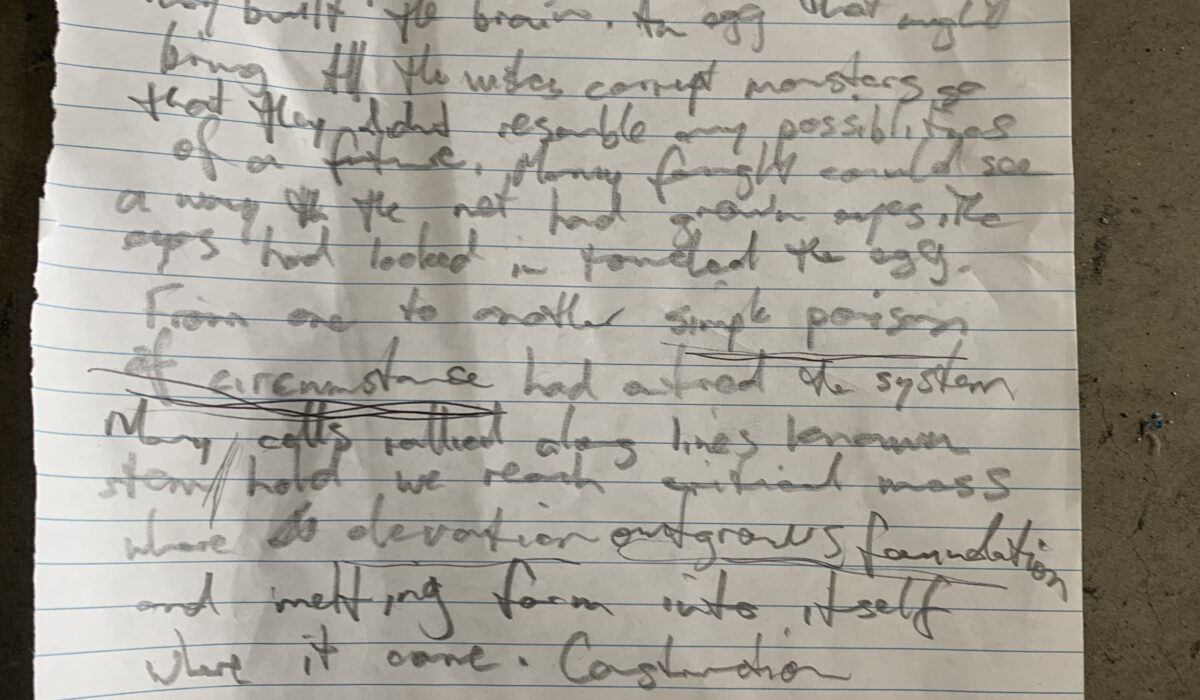 built the brain. An egg that might
bring the corrupt monsters so
that they didnt resemble any possiblities
of a future. Many fought could see
a way the net had grown eyes. The
eyes had looked in the egg.
From one to another simple poison
of circumstance had the system
Many cells rallied along lines known
stem/hold we reach critical mass
where devotion outgrows foundation
and melting form into itself
where it came. Construction